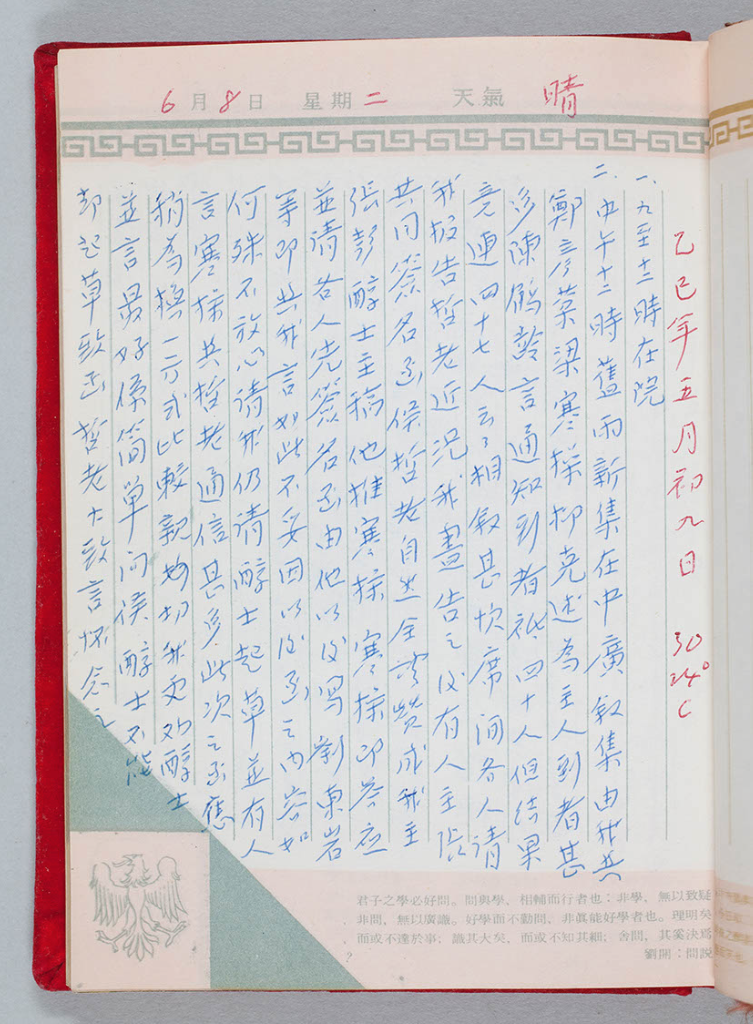 6月8日 星期二 天氣 晴
乙巳年五月初九日 30 24°C
一、九至十二時在院
二、中午十二時舊雨新集在中廣敘集由我共
鄭彥棻梁寒操柳克述為主人到者甚
多陳鶴齡言通知到者祗四十人但結果
竟達四十七人云々相敘甚歡席間各人請
我報告哲老近況我盡告之後有人主張
共同簽名函候哲老自然全體贊成我主
張彭醇士主稿他推寒操寒操即答應
並請各人先簽名函由他以後寫劉東岩
等即共我言如此不妥因以後函之內容如
何殊不放心請我仍請醇士起草並有人
言寒操共哲老通信甚多此次之函應
稍為換一方式比較親切我更勸醇士
並言最好係簡單問候醇士不能
却起草致函哲老大致言懷念之
君子之學必好問。問與學，相輔而行者也：非學，無以致疑
非問，無以廣識。好學而不勤問，非真能好學者也。理明矣
，而或不達於事；識其大矣，而或不知其細；舍問，其奚決焉
？
劉開：問說